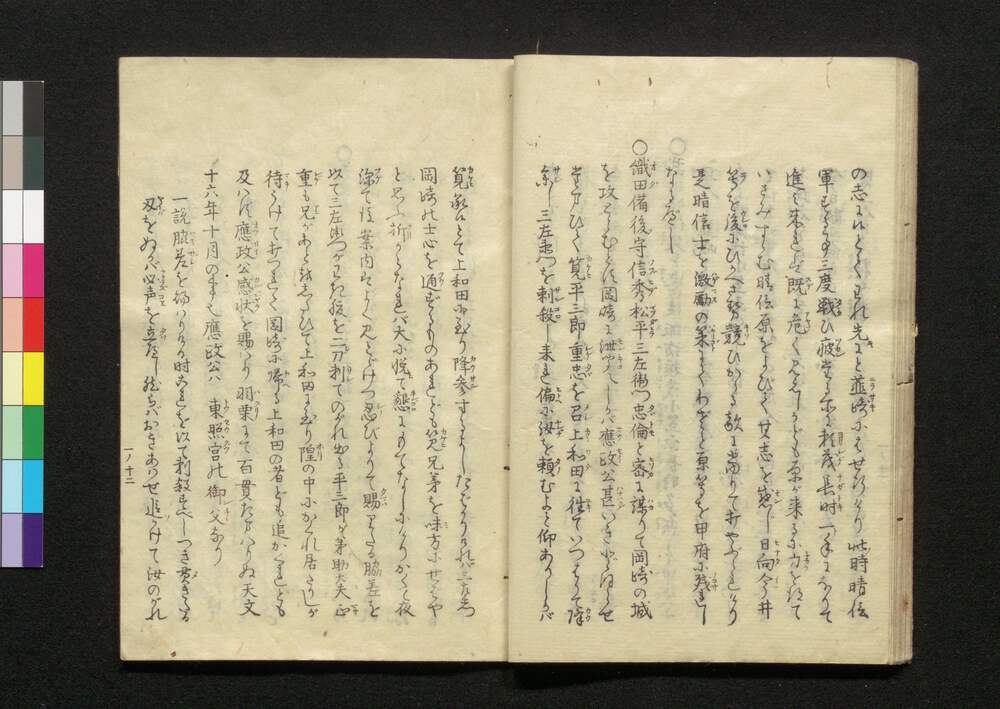 の志にひとしくわれ先にと韮崎にはせ行けり此時晴信
軍むすること三度戦ひ疲たる所に村義長時一手になりて
進み来れば既に危く見えけれども原が来るに力を得て
いさみすゝむ晴信原をよびて其志を感じ日向今井
等を後にひかへ勢競ひかゝる敵に当りて打やぶれけり
是晴信士を激励の策にてわざと原等を甲府に残し
なるべし
〇織田備後守信秀松平三左衛門忠倫と密に謀りて岡崎の城
を攻とらむとす岡崎に洩れしかば應政公甚いきどほらせ
たまひて筧平三郎重忠を召上和田に往ていつはりて降
参し三左衛門を刺殺し来れ偏に汝を頼むよと仰ありしかば
筧承りて上和田に到り降参すべきよしたばかりければ三左衛門
岡崎の士心を通ずるものあれども筧兄弟を味方にせばや
と思ふ折からなれば大に悦て懇にもてなしにけりかくて夜
深て後案内はよく見とゞけつ忍びよりて賜りたる脇差を
以て三左衛門がわき腹を二刀刺てのがれ出る平三郎が弟助大夫正
重も兄があとをしたひて上和田に到り隍の中にかくれ居たりしが
待うけて打つれて岡崎に帰る上和田の者ども追かくれども
及はず應政公感状を賜はり羽栗にて百貫たまはりぬ天文
十六年十月の事也應政公ハ 東照宮の御父なり
一説脇差を賜はりける時これを以て刺殺すべしつき貫きたる
刄をぬかば必声を立べし然らバおきあはせ追かけて汝のがれ
一ノ十二